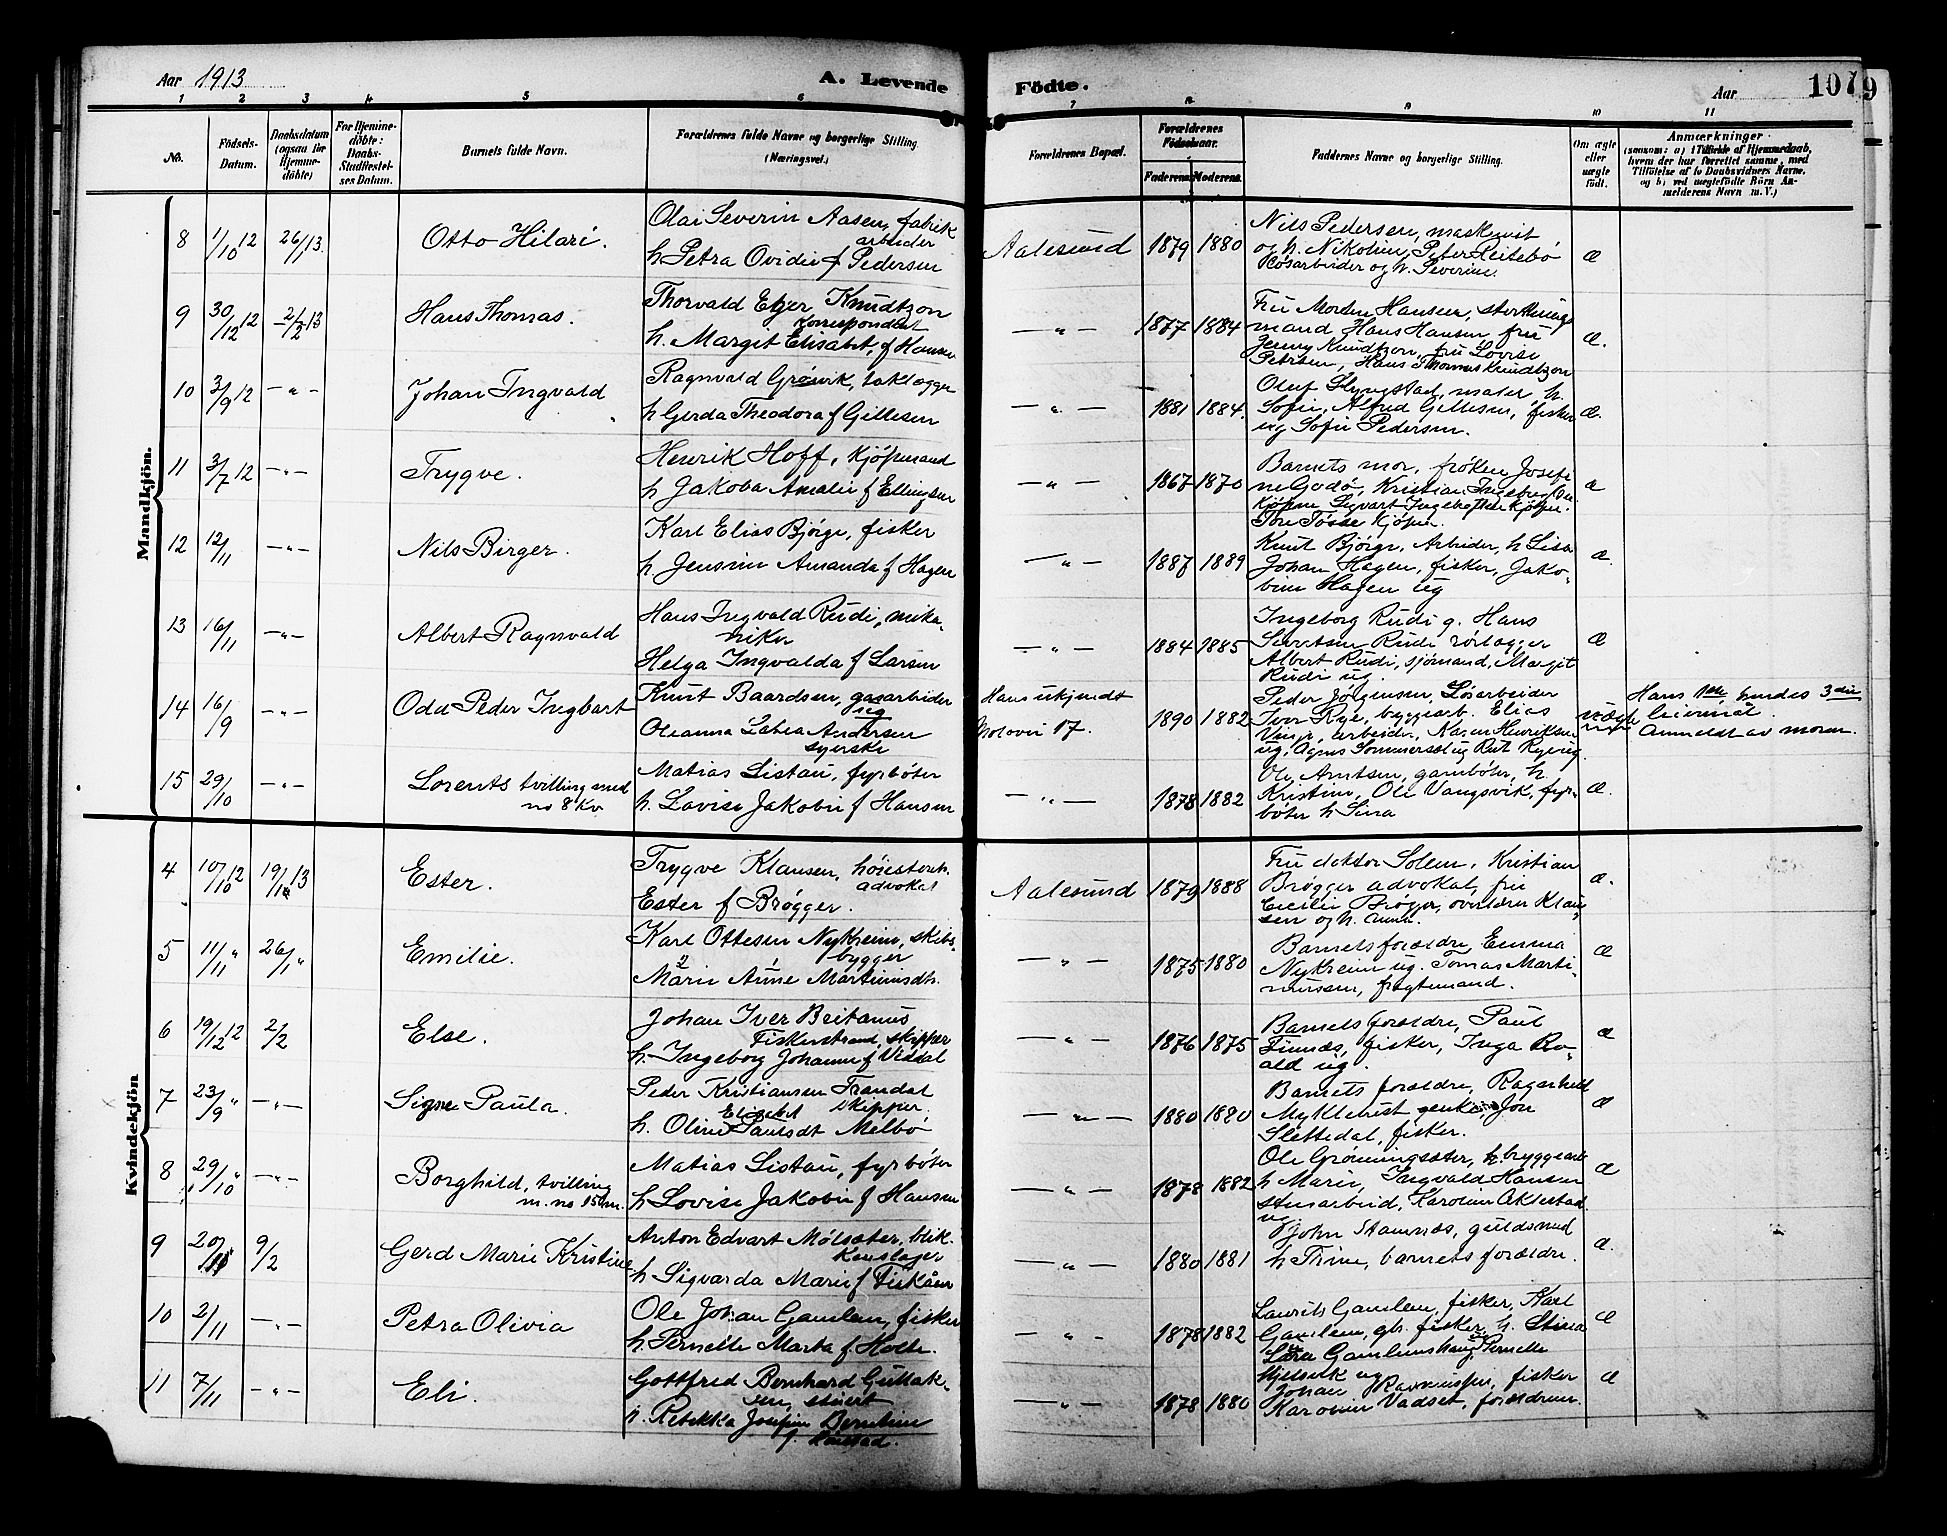 Aar 1913 A. Levende Födte. Aar 107 9
1 2 3 4 5 6 7 8 9 10 11
No.
Födsels-Datum.
Daabsdatum (ogsaa for Hjemme-döbte)
For Hjemme-döbte: Daabs-Stadfæstel-ses Datum.
Barnets fulde Navn.
Forældrenes fulde Navne og borgerlige Stilling. (Næringsvei.)
Forældrenes Bopæl.
Forældrenes Födselsaar.
Faderens Moderens.
Faddernes Navne og borgerlige Stilling.
Om ægte eller uægte födt.
Anmærkninger.
(saasom: a) i Tilfælde af Hjemmedaab,
hvem der har forrettet samme, med
Tilföielse af to Daabsvidners Navne,
og b) ved uægtefödte Börn An-
melderens Navn m.V.)
Mandkjön.
8 1/10 12 26/13. Otto Hilari. Olai Severin Aasen, fabrik
arbeider
h Petra Ovidie f Pedersen
Aalesund 1879 1880 Nils Pedersen, maskinist
og h. Nikoline, Peter Reitebö
Løsarbeider og h. Severine.
æ
9 30/12 12 2/2 13 Hans Thomas. Thorvald Ejer Knudtzon
Korrespondent
h. Margit Elisabet, f Hansen
— „ — 1877 1884 Fru Morden Hansen, styrkmand Hans Hansen fru
Jenny Knudtzon, fru Lovise
Petersen, Hans Thomas Knudtzon
æ.
10 3/9 12 — „ — Johan Ingvald Ragnvald Grøvik, taktægger
h Gerda Theodora f Gillesen
— „ — 1881 1884. Oluf Slyngstad, maler h.
Sofie, Alfred Gillesen, fisker
ug Sofie Pedersen.
æ.
11 3/7 12 — „ — Trygve. Henrik Hoff, Kjöpmand
h Jakoba Amalie f Ellingsen
— „ — 1867 1870 Barnets mor, frøken Josefi
ne Godø, Kristian Ingebrigtsen
Kjöpm. Sigvart Ingebrigtsen Kjöpm.
Tore Tøsse Kjöpm.
æ
12 12/11 — „ — Nils Birger. Karl Elias Bjørge, fisker
h. Jensine Amanda f Hagen
— „ — 1887 1889 Knut Bjørge, Arbeider, h Lisa
Johan Hagen, fisker, Jako-
bine Hagen ug
æ.
13 16/11 — „ — Albert Ragnvald Hans Ingvald Rudi, meka-
niker
Helga Ingvalda f Larsen
— „ — 1884 1885 Ingeborg Rudi g. Hans
Sivertsen Rudi rörlægger
Albert Rudi, sjömand, Margit
Rudi ug.
æ
14 16/9 — „ — Odd Peder Ingbart Knut Baardsen, gasarbeider
ug
Oleanna Labea Andersen
syerske
Hans ukjendt
Molovei 17. 1890 1882 Peder Jørgensen, Løsarbeider
Iver Rye, byggearb. Elias
Vinje, arbeider, Karen Henriksen
ug, Agnes Sommersæt ug Rut Rye ug.
uægte Hans 1ste hendes 3die
leiermål.
Anmeldt av moren.
15 29/10 — „ — Lorents tvilling med
no 8 Kv Matias Listau, fyrbøter
h. Lovise Jakobie f Hansen
— „ — 1878 1882 Ole Arntsen, garnbøter, h.
Kristine, Ole Vangsvik, fyr-
bøter h Lina
æ.
Kvindekjön
4 10/10 12 19/1 13 Ester. Trygve Klausen, høiesterets.
advokat
Ester f Brøgger.
Aalesund 1879 1888 Fru doktor Solem, Kristian
Brøgger advokat, fru
Cecilie Brøgger, overlærer Klau-
sen og h. Anna.
æ.
5 11/11 „ 26/1 „ Emilie. Karl Ottesen Nykreim, skibs-
bygger
Marie Anne Martinusdt.
— „ — 1875 1880 Barnets forældre, Emma
Nykreim ug. Tomas Marti-
nussen, fragtemand.
æ
6 19/12 12 2/2 Else. Johan Iver Britanus
Fiskerstrand, skipper
h. Ingeborg Johanne f Vedal
— „ — 1876 1875 Barnets forældre, Paul
Finnæs, fisker, Inga Ro-
ald ug.
æ
7 23/9 „ — „ — Signe Paula. Peder Kristiansen Trandal
skipper.
h. Oline Elisabet Paulsdt Melbø
— „ — 1880 1880 Barnets forældre, Ragnhild
Myklebust enke, Jon
Slettedal, fisker.
æ
8 29/10 „ — „ — Borghild, tvilling
m. no 15 m. Matias Listau, fyrbøter
h Lovise Jakobie f Hansen
— „ — 1878 1882 Ole Grønningsæter, bryggearb
h Marie, Ingvald Hansen
stuearbeid, Karoline Aklestad
ug
æ
9 20/11 9/2 Gerd Marie Kristine Anton Edvart Mølsæter, blik-
kenslager
h Sigvarda Marie f Fiskåen
— „ — 1880 1881 John Stamnæs, guldsmed
h Trine, barnets forældre.
æ.
10 2/11 — „ — Petra Olivia Ole Johan Gamlem, fisker
h. Pernelle Marta f Holte.
— „ — 1878 1882 Laurits Gamlem, fisker, Karl
Gamlem, gb. fisker, h. Stina
Lara Gamlemshaug, Pernelle
Hjelsvik ug
æ
11 7/11 — „ — Eli. Gottfred Bernhard Gullak-
sen,
h. Rebekka Josefine Berntine
f.
— „ — 1878 1880 Johan fisker
Karoline Vadset, forældrene.
æ